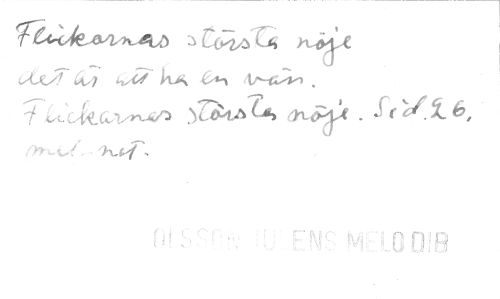 Flickornas största nöje
det är att ha en vän.
Flickarnas största nöje. Sid. 26,
mel. not.
OLSSON JULENS MELODIB